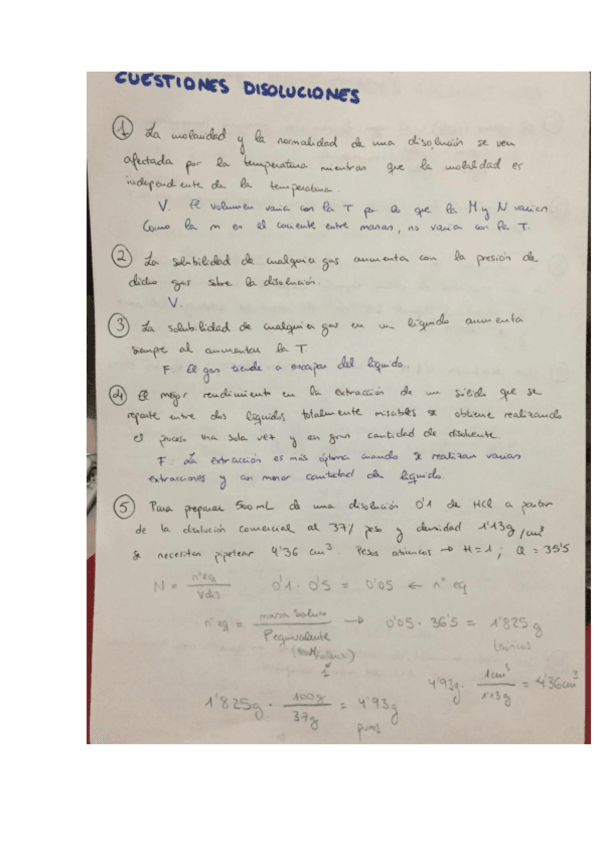 CUESTIONES DISOLUCIONES
① La molaridad y la normalidad de una disolución se ven
afectada por la temperatura mientras que la molalidad es
independiente de la temperatura.
V. El volumen varia con la T por lo que la M y N varian
Como la m es el cociente entre masas, no varia con la T.
② La solubilidad de cualquier gas aumenta con la presión de
dicho gas sobre la disolución.
V.
③ La solubilidad de cualquier gas en un líquido aumenta
siempre al aumentar la T.
F. El gas tiende a escapar del líquido.
④ El mejor rendimiento en la extracción de un sólido que se
reparte entre dos líquidos totalmente miscibles se obtiene realizando
el proceso una sola vez y con gran cantidad de disolvente.
F. La extracción es más óptima cuando se realizan varias
extracciones y con menor cantidad de líquido.
⑤ Para preparar 500 mL de una disolución 0'1 de HCl a partir
de la disolución comercial al 37/ peso y densidad 1'13g/cm³
se necesitan pipetear 4'36 cm³. Pesos atómicos → H=1; Cl=35'5
N = nºeq / Vdis 0'1 · 0'5 = 0'05 ← nº eq
nºeq = masa soluto / Pequivalente → 0'05 · 36'5 = 1'825 g
1'825g · 100g / 37g = 4'93g
4'93g · 1cm³ / 1'13g = 4'36cm³